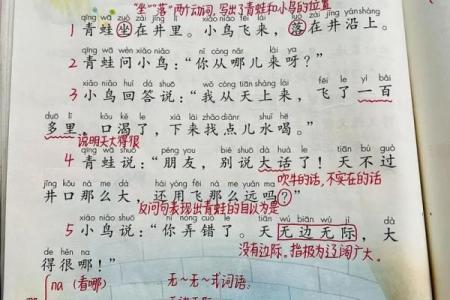 "坐""落"两个动词,写出了青蛙和小鸟的位置
qīng wā zuò zài jǐng lǐ xiǎo niǎo fēi lái luò zài jǐng yán shàng
1 青蛙坐在井里。小鸟飞来,落在井沿上。
qīng wā wèn xiǎo niǎo nǐ cóng nǎr lái ya
2 青蛙问小鸟:“你从哪儿来呀?”
xiǎo niǎo huí dá shuō wǒ cóng tiān shàng lái fēi le yì bǎi
3 小鸟回答说:“我从天上来,飞了一百
duō lǐ kǒu kě le xià lái zhǎo diǎnr shuǐ hē
多里,口渴了,下来找点儿水喝。”
说明天大得很
qīng wā shuō péng you bié shuō dà huà le tiān bú guò
4 青蛙说:“朋友,别说大话了!天不过
吹牛的话,不实在的话
jǐng kǒu nà me dà hái yòng fēi nà me yuǎn ma
井口那么大,还用飞那么远吗?”
反问句表现出青蛙的自以为是
xiǎo niǎo shuō nǐ nòng cuò le tiān wú biān wú jì dà
5 小鸟说:“你弄错了。天无边无际,大
没有边际。指极为辽阔广大。
de hěn na
得很哪!”
na (看哪) 无~无~式词语: